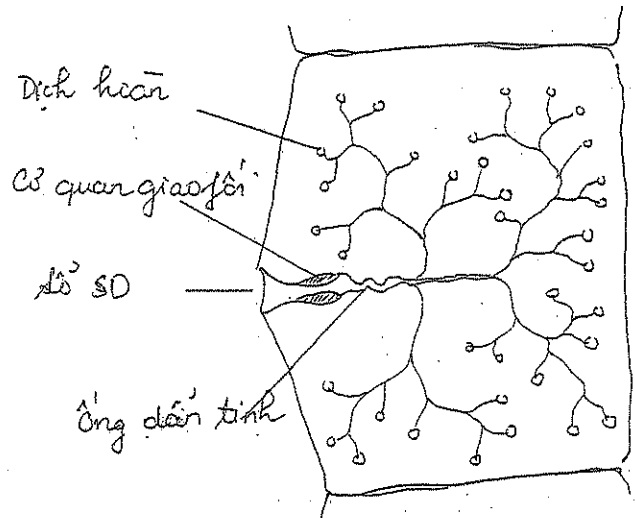 Dịch hoàn
Cơ quan giao phối
Lỗ SD
Ống dẫn tinh